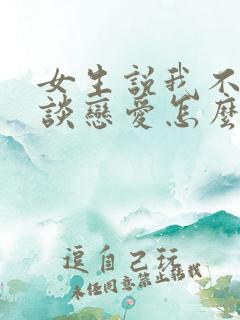 女生説我不
談戀愛怎麽
逗自己玩
未经同意禁止转载